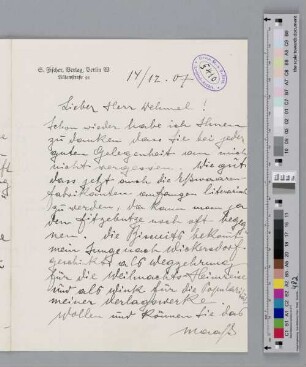 S. Fischer, Verlag, Berlin W
Bülowstraße 90
14/12. 07
Lieber Herr Dehmel!
Schon wieder habe ich Ihnen
zu danken dass Sie bei jeder
guten Gelegenheit an mich
nicht vergessen. Wie gut
dass jetzt auch die Esswaaren-
fabrikanten anfangen literarisch
zu werden, da kann man ja
den Fitzebutze noch oft begeg-
nen. Die Bisquits bekommt
mein Junge nach Wickersdorf
geschickt als Wegzehrung
für die Weihnachts Heimreise
und als Wink für die Popularität
meiner Verlagswerke
Wollen und können Sie das